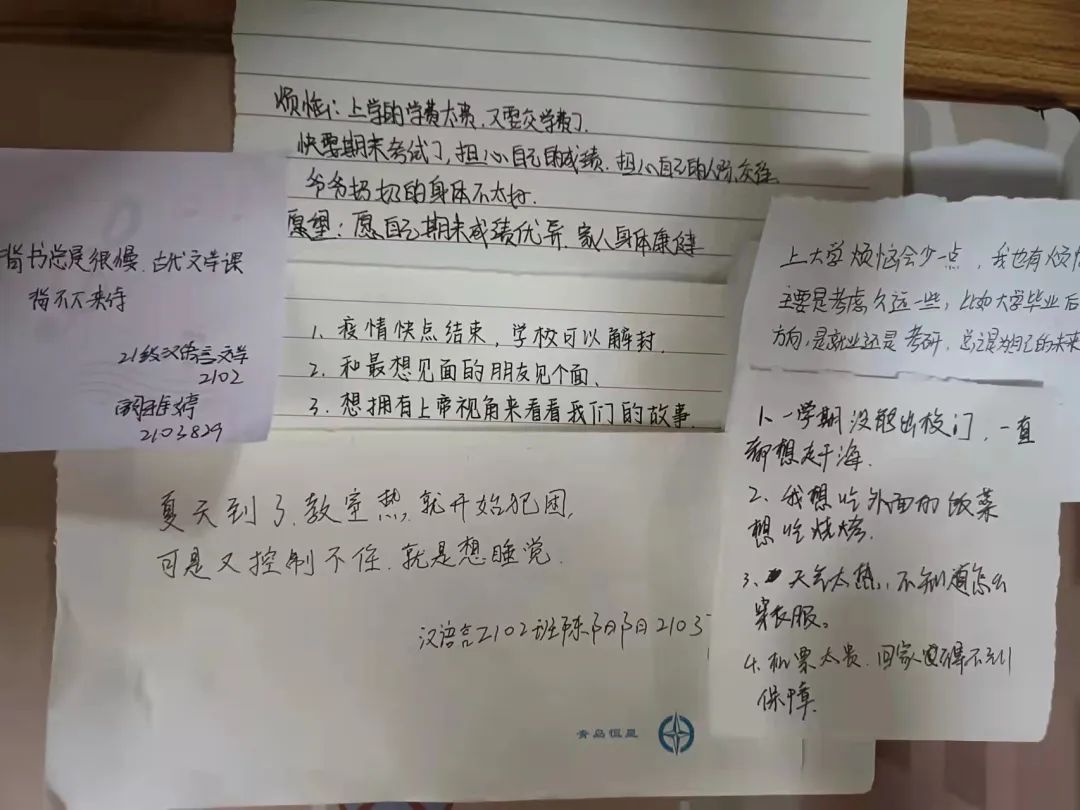 烦恼: 上学的学费太贵,又要交学费了.
快要期末考试了,担心自己的成绩.担心自己的人际交往
爷爷奶奶的身体不太好.
愿望: 愿自己期末成绩优异.家人身体康健
背书总是很慢.古代文学课
背不下来待
21级汉语言文学
2102
婷
2103829
1. 疫情快点结束,学校可以解封.
2. 和最想见面的朋友见个面、
3. 想拥有上帝视角来看看我们的故事.
上大学烦恼会少一点,我也有烦恼
主要是考虑久远一些,比如大学毕业后
方向,是就业还是考研,总之是为自己的未来
1、一学期没能出校门,一直
都想去干海.
2、我想吃外面的饭菜
想吃烧烤.
3、天气太热,不知道怎么
穿衣服。
4、机票太贵.回家得不到
保障.
夏天到了.教室热.就开始犯困,
可是又控制不住.就是想睡觉.
汉语言2102班陈阳阳2103
青岛恒星